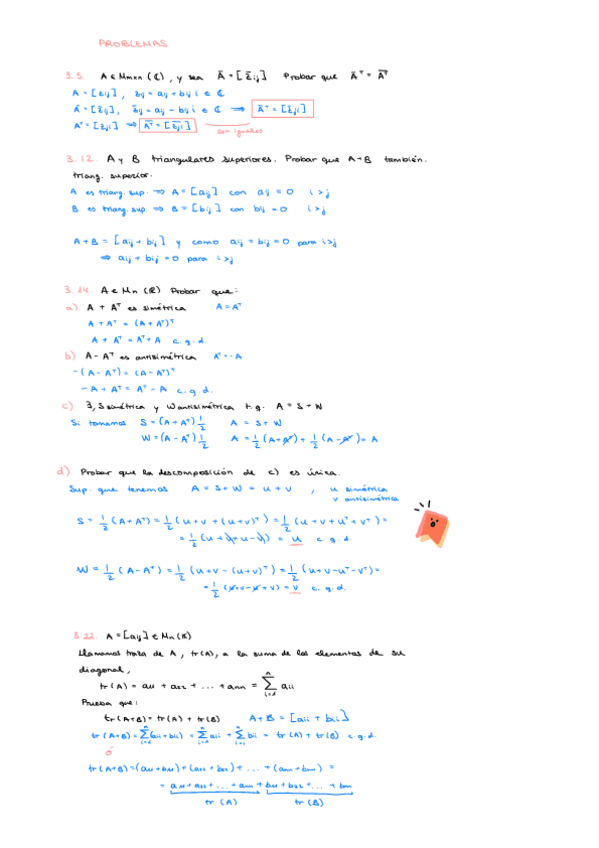 PROBLEMAS
3.5. A ∈ Mmxn (ℂ), y sea Ā = [z̄ij] Probar que Āᵀ = A̅ᵀ̅
A = [zij], zij = aij + bij i ∈ ℂ
Ā = [z̄ij], z̄ij = aij - bij i ∈ ℂ ⟹ Āᵀ = [z̄ji]
Aᵀ = [zji] ⟹ A̅ᵀ̅ = [z̄ji] son iguales
3.12. A y B triangulares superiores. Probar que A+B también.
triang. superior.
A es triang. sup. ⟹ A = [aij] con aij = 0 i>j
B es triang. sup ⟹ B = [bij] con bij = 0 i>j
A+B = [aij + bij] y como aij = bij = 0 para i>j
⟹ aij + bij = 0 para i>j
3.14. A ∈ Mn (ℝ) Probar que:
a) A + Aᵀ es simétrica A = Aᵀ
A + Aᵀ = (A + Aᵀ)ᵀ
A + Aᵀ = Aᵀ + A c.q.d.
b) A - Aᵀ es antisimétrica Aᵀ = -A
-(A - Aᵀ) = (A - Aᵀ)ᵀ
-A + Aᵀ = Aᵀ - A c.q.d.
c) ∃, S simétrica y W antisimétrica t.q. A = S + W
Si tomamos S = (A + Aᵀ) 1/2 A = S + W
W = (A - Aᵀ) 1/2 A = 1/2 (A + Aᵀ) + 1/2 (A - Aᵀ) = A
d) Probar que la descomposición de c) es única.
Sup. que tenemos A = S + W = U + V , U simétrica
V antisimétrica
S = 1/2 (A + Aᵀ) = 1/2 (U + V + (U + V)ᵀ) = 1/2 (U + V + Uᵀ + Vᵀ) =
= 1/2 (U + V + U - V) = U c.q.d.
W = 1/2 (A - Aᵀ) = 1/2 (U + V - (U + V)ᵀ) = 1/2 (U + V - Uᵀ - Vᵀ) =
= 1/2 (U + V - U + V) = V c.q.d.
3.22. A = [aij] ∈ Mn (K)
Llamamos traza de A, tr(A), a la suma de los elementos de su
diagonal,
tr(A) = a11 + a22 + ... + ann = Σ aii
Prueba que:
tr(A+B) = tr(A) + tr(B) A+B = [aii + bii]
tr(A+B) = Σ (aii + bii) = Σ aii + Σ bii = tr(A) + tr(B) c.q.d.
ó
tr(A+B) = (a11 + b11) + (a22 + b22) + ... + (ann + bnn) =
= a11 + a22 + ... + ann + b11 + b22 + ... + bnn
tr(A) tr(B)